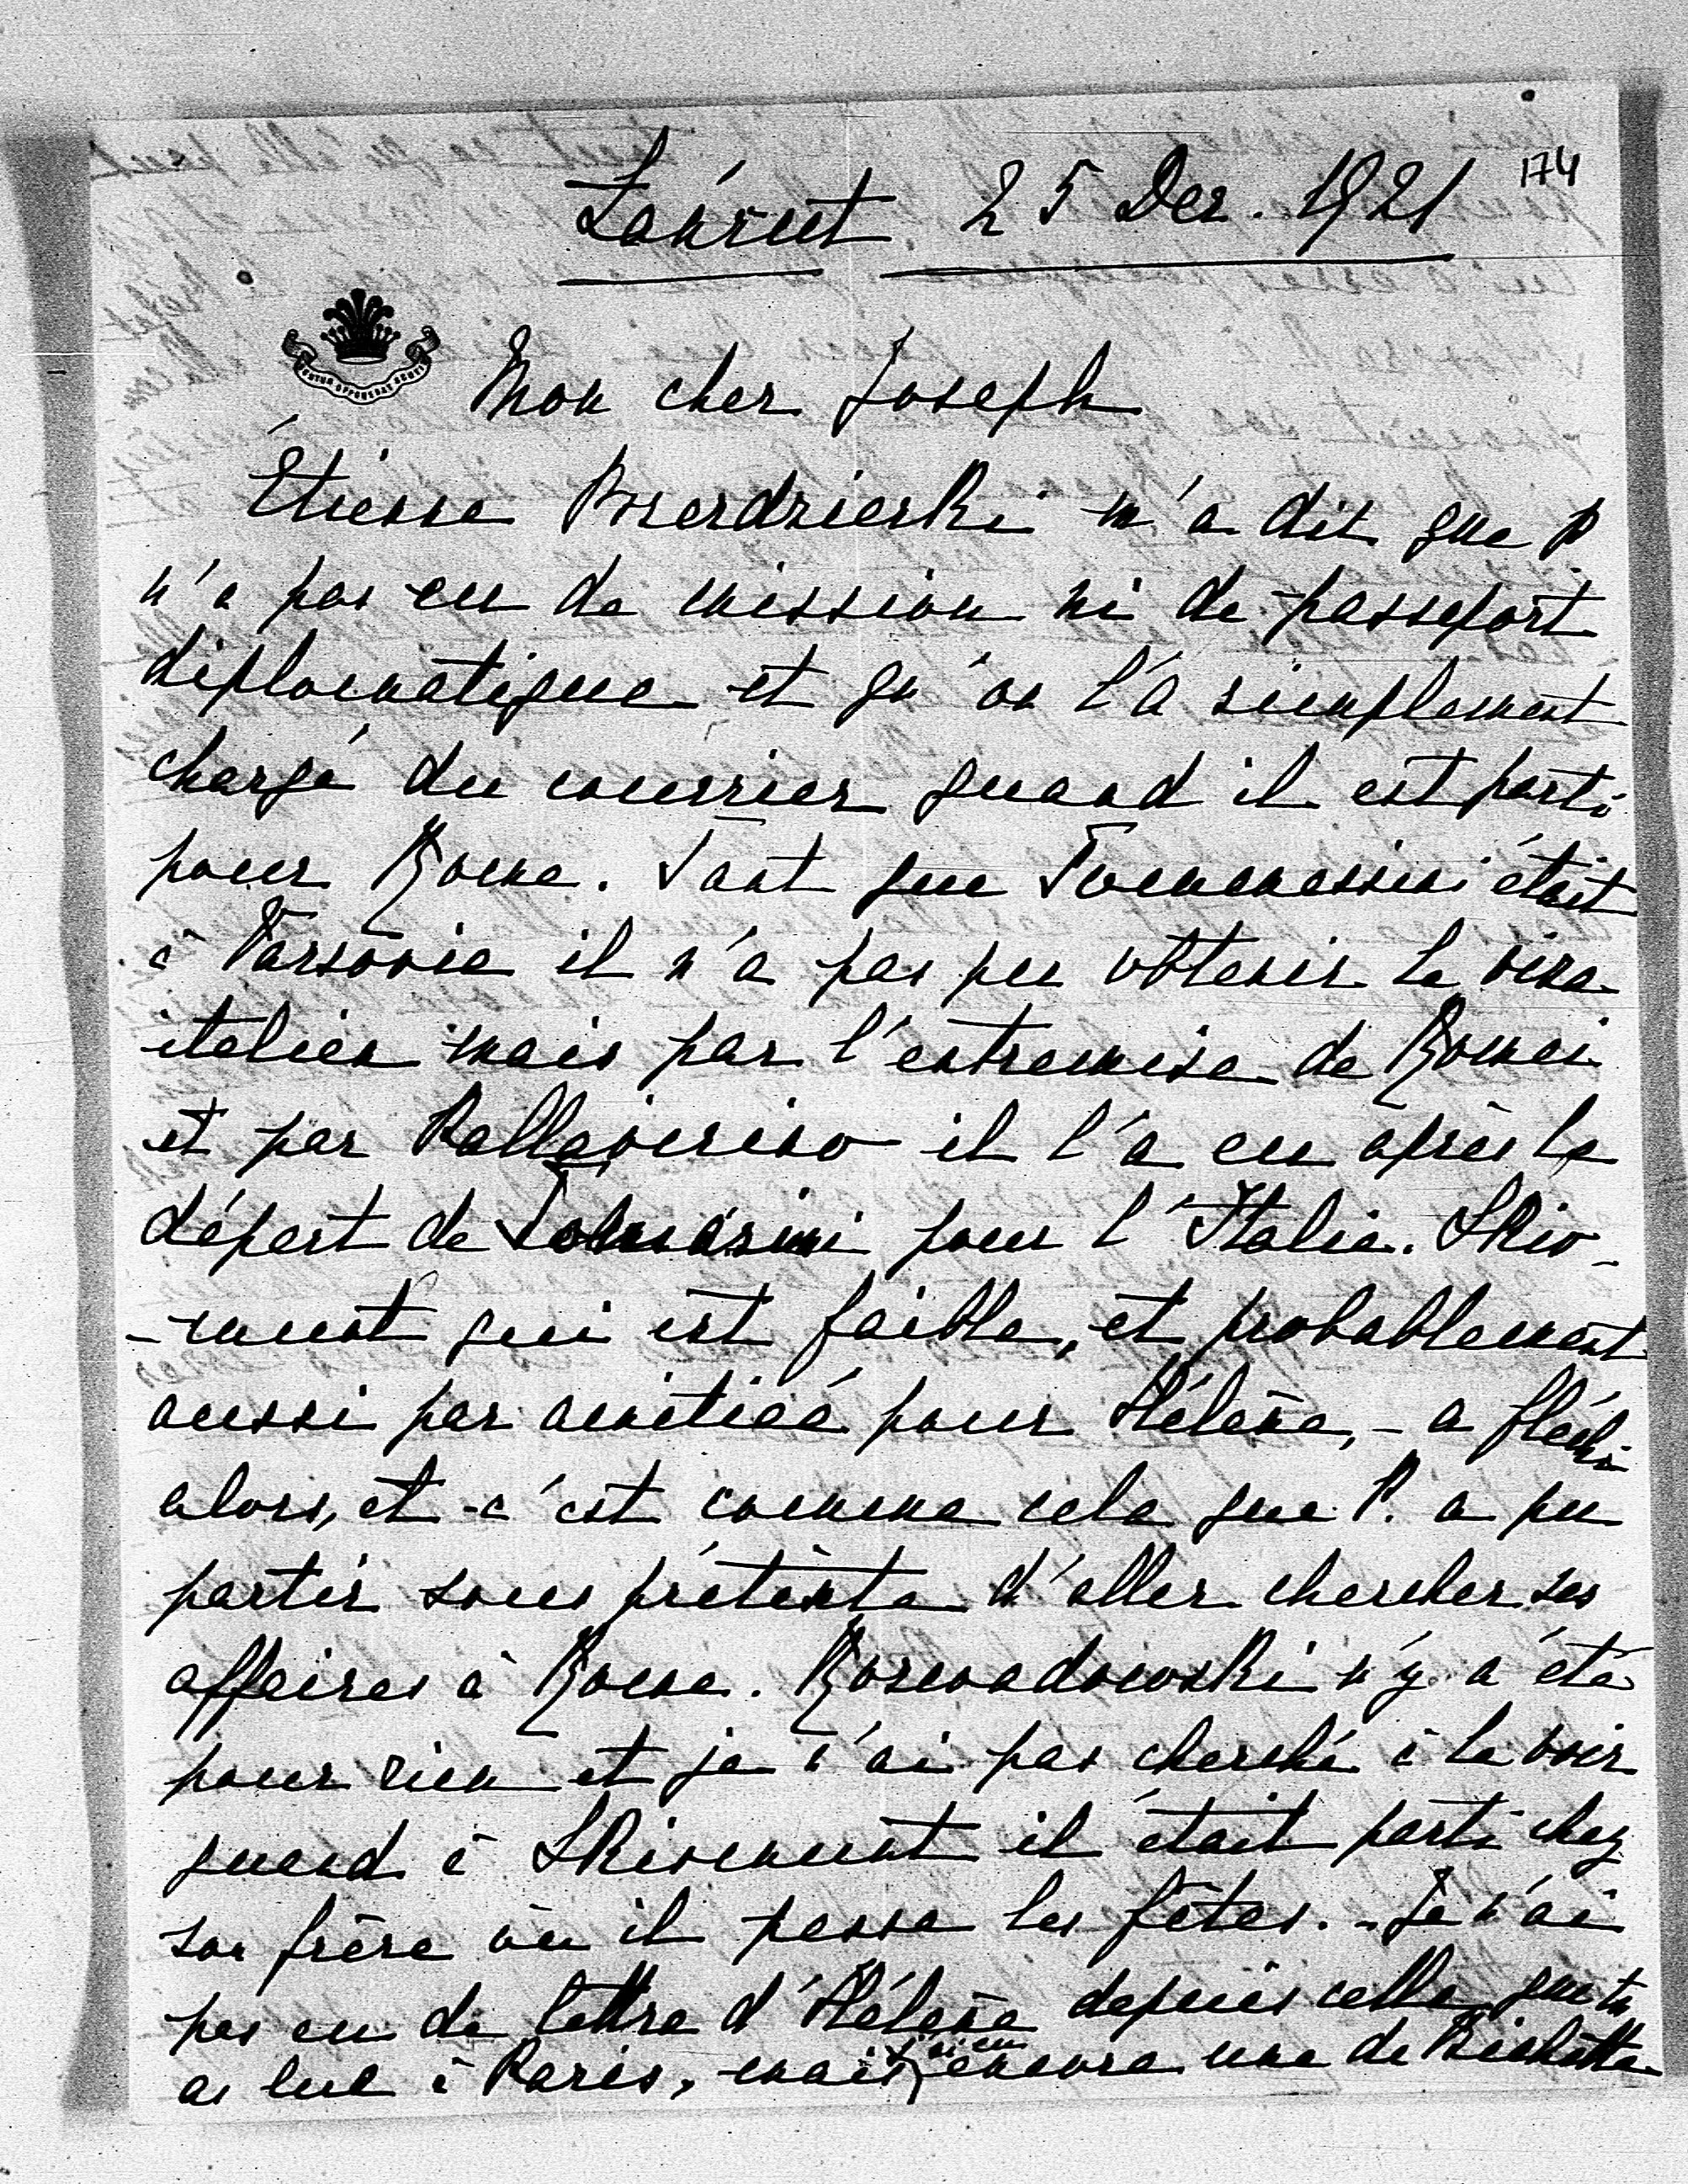 174
Łańcut 25 Dez. 1921
Mon cher Joseph
Étienne m'a dit que P
n'a pas eu de mission ni de passeport
diplomatique et qu'on l'a simplement
chargé du courrier quand il est parti
pour Rome. Tant que Tommassini était
à Varsovie il n'a pas pu obtenir le visa
italien mais par l'entremise de Romei
et par Pallavicino il l'a eu après le
départ de Tomasini pour l'Italie. Skir-
-munt qui est faible, et probablement
aussi par amitié pour Hélène, - a fléchi
alors, et c'est comme cela que P. a pu
partir sous prétexte d'aller chercher ses
affaires à Rome. Rozwadowski n'y a été
pour rien et je n'ai pas cherché à le voir
quand à Skirmunt il était parti chez
son frère où il passe les fêtes. - Je n'ai
pas eu de lettre d'Hélène depuis celle que tu
as lue à Paris, mais j'ai eu encore une de Bichette